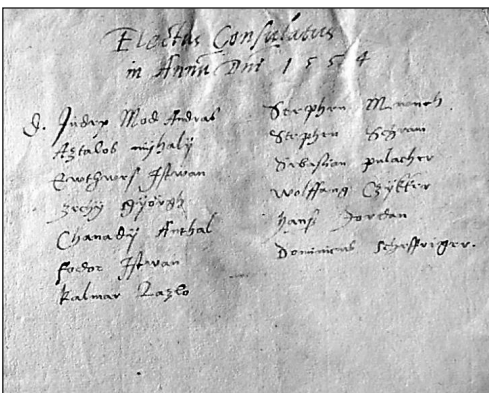 Electus Consulatus
in Annu Dni 1554
D. Judex Mod Andras
Aztalos myhalÿ
Ewthwes Istwan
Zechÿ Gÿörgÿ
Chanadÿ Anthal
Fodor Istwan
Kalmar Lazlo
Stephen
Stephen Schram
Sebastian pulacher
Wolffgang Czÿkker
Hans Jordan
Dominicus